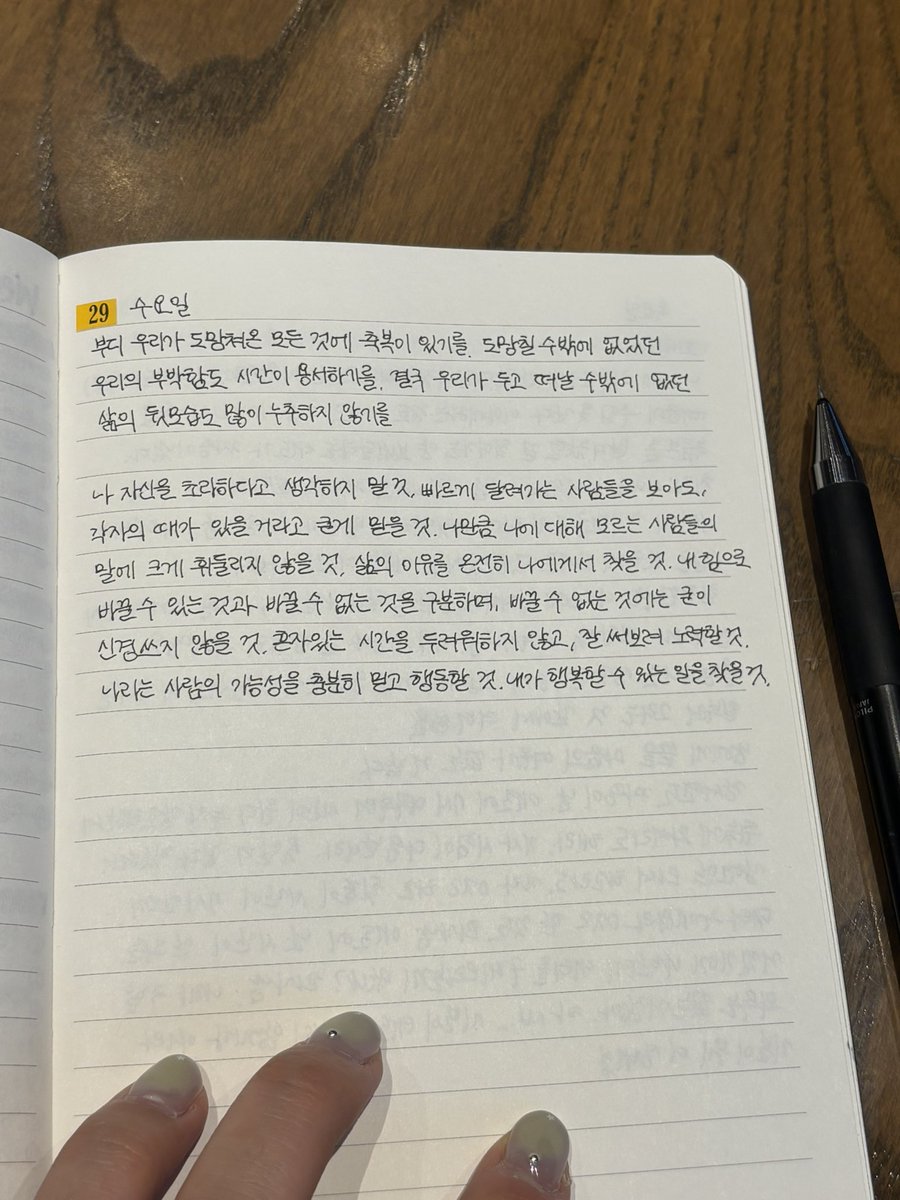 29 수요일
부디 우리가 도망쳐온 모든 것에 축복이 있기를. 도망칠 수밖에 없었던
우리의 부박함도 시간이 용서하기를. 결국 우리가 두고 떠날 수밖에 없던
삶의 뒷모습도 많이 누추하지 않기를
나 자신을 초라하다고 생각하지 말 것, 빠르게 달려가는 사람들을 보아도,
각자의 때가 있을 거라고 굳게 믿을 것. 나만큼 나에 대해 모르는 사람들의
말에 크게 휘둘리지 않을 것, 삶의 이유를 온전히 나에게서 찾을 것. 내 힘으로
바꿀 수 있는 것과 바꿀 수 없는 것을 구분하며, 바꿀 수 없는 것에는 굳이
신경쓰지 않을 것. 혼자있는 시간을 두려워하지 않고, 잘 써보려 노력할 것.
나라는 사람의 가능성을 충분히 믿고 행동할 것. 내가 행복할 수 있는 일을 찾을 것.